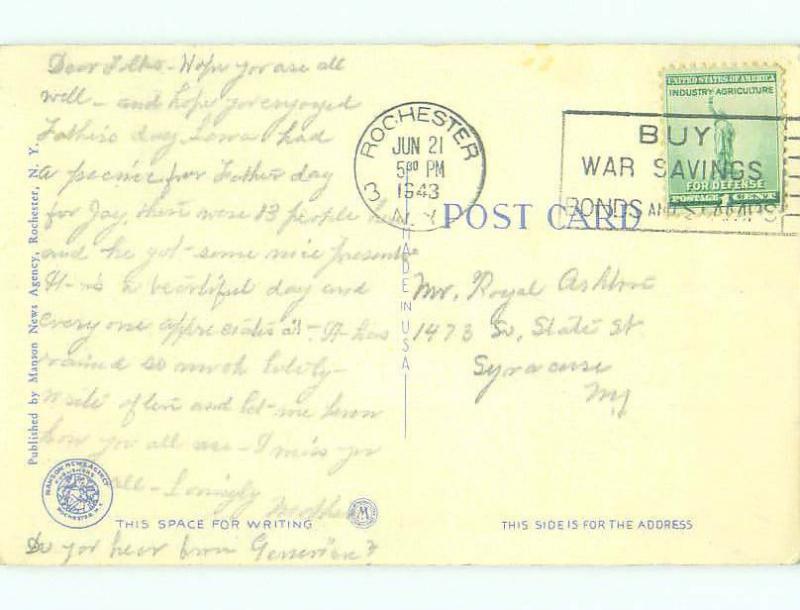 Dear Folks - Hope you are all
well - and hope you enjoyed
Father's day, had
a picnic for Father day
for Jay, there were 13 people here
and he got some nice presents
It is a beautiful day and
every one appreciates it - It has
rained so much lately -
write often and let me know
how you all are - I miss you
all - Lovingly
Mother
Do you hear from Genevieve?
THIS SPACE FOR WRITING
Published by Manson News Agency, Rochester, N. Y.
MANSON NEWS AGENCY
PUBLISHERS
ROCHESTER, N.Y.
M
MADE IN USA
ROCHESTER
JUN 21
5 00 PM
1943
3 N.Y.
BUY
WAR SAVINGS
BONDS AND STAMPS
UNITED STATES OF AMERICA
INDUSTRY AGRICULTURE
FOR DEFENSE
POSTAGE 1 CENT
POST CARD
Mr. Royal
1473 So. State St
Syracuse
NY
THIS SIDE IS FOR THE ADDRESS